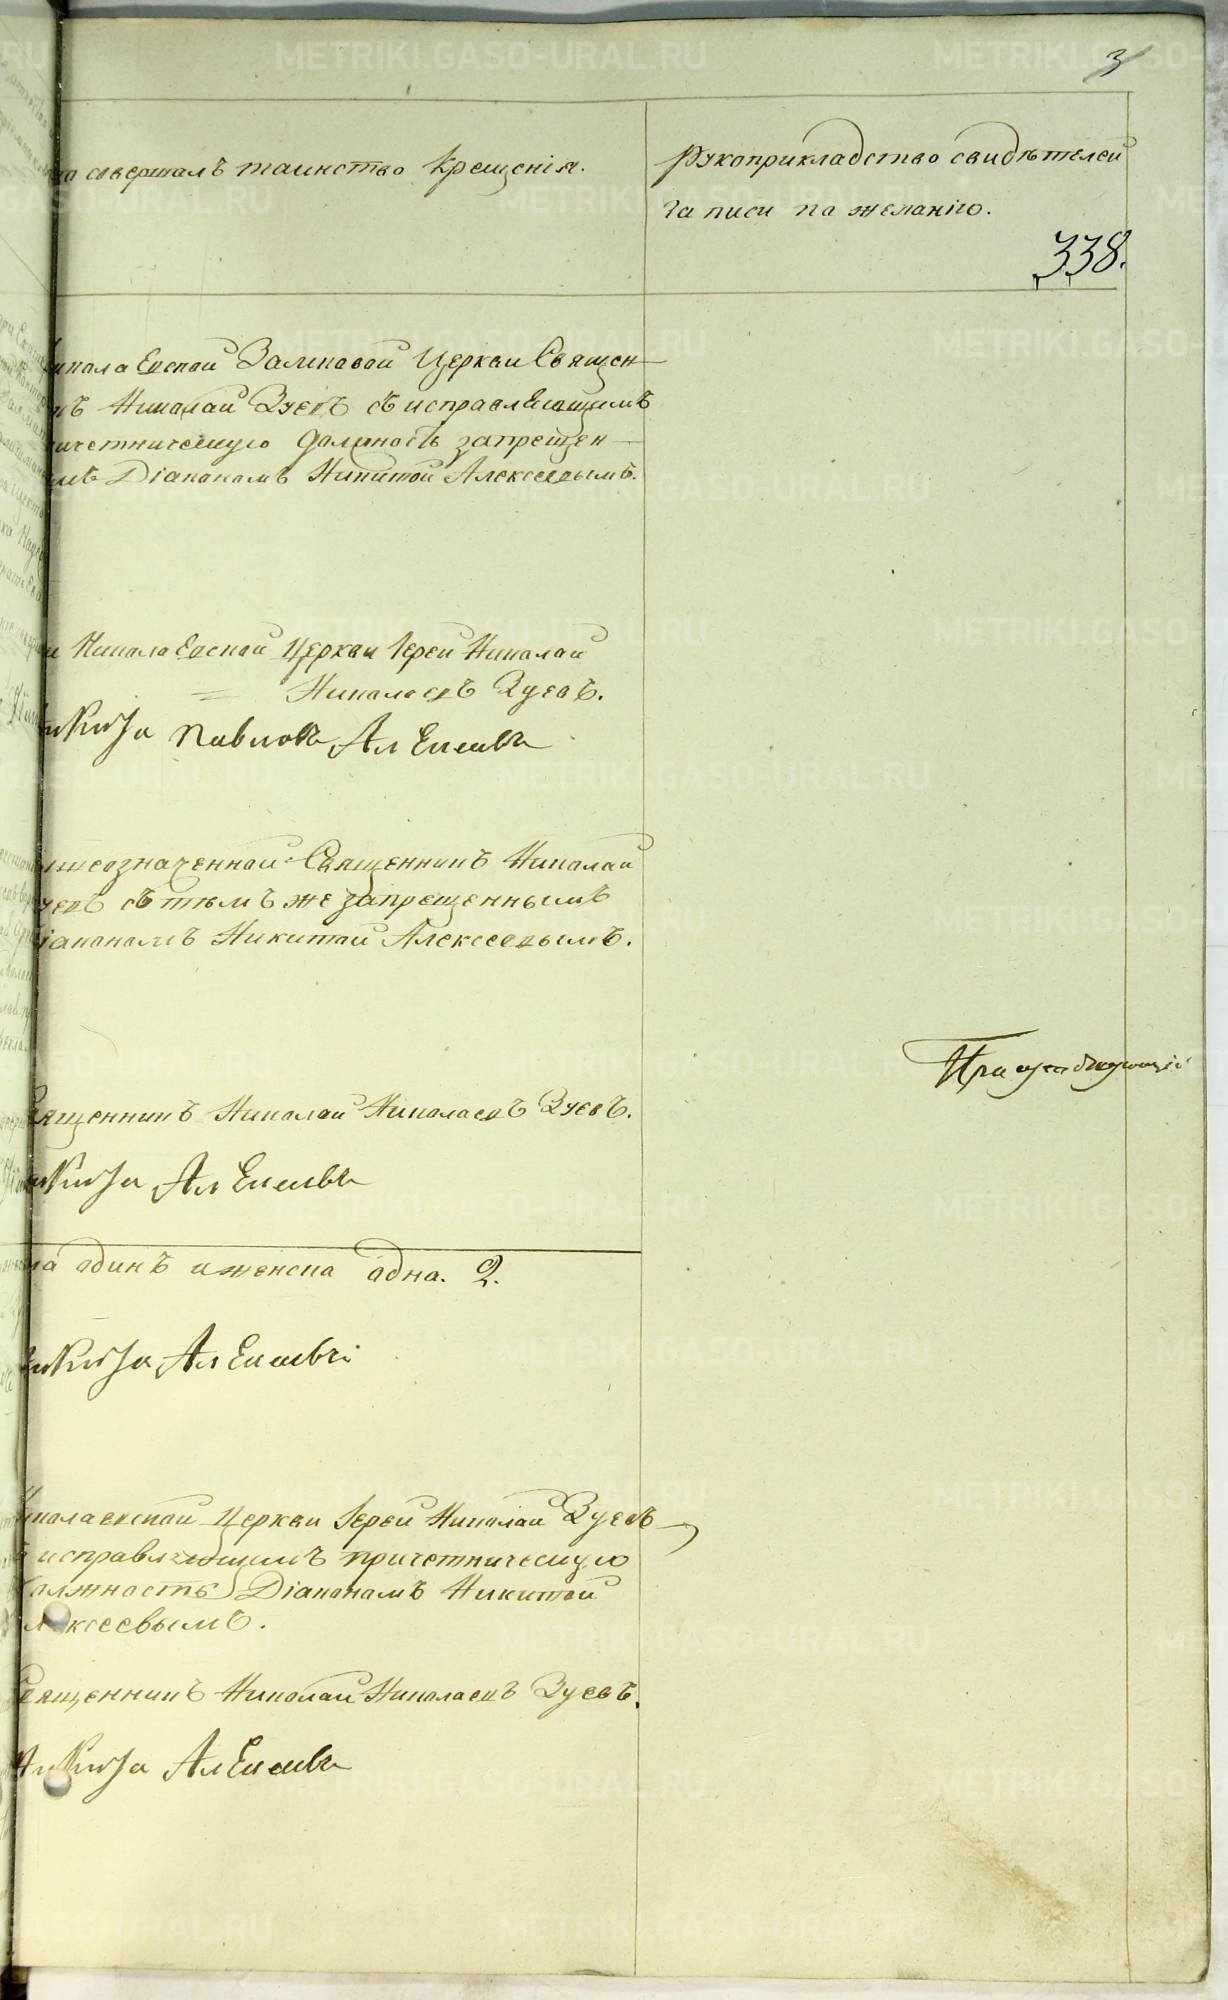 3
совершалъ таинство крещенія.
Рукоприкладство свидѣтелей
записи по желанію.
338.
Николаевской Заимковой Церкви Священ-
Николай Зуевъ съ исправляющимъ
причетническую должность запрещен-
Діакономъ Никитой Алексеевымъ.
Николаевской Церкви Іерей Николай
Николаевъ Зуевъ.
Никита Павловъ Алексеевъ
вышеозначенной Священникъ Николай
Зуевъ съ тѣмъ же запрещеннымъ
Діакономъ Никитой Алексеевымъ.
Священникъ Николай Николаевъ Зуевъ.
Никита Алексеевъ
одинъ и женска одна. 2.
Никита Алексеевъ
Николаевской Церкви Іерей Николай Зуевъ
съ исправляющимъ причетническую
должность Діакономъ Никитой
Алексеевымъ.
Священникъ Николай Николаевъ Зуевъ.
Никита Алексеевъ
METRIKI.GASO-URAL.RU